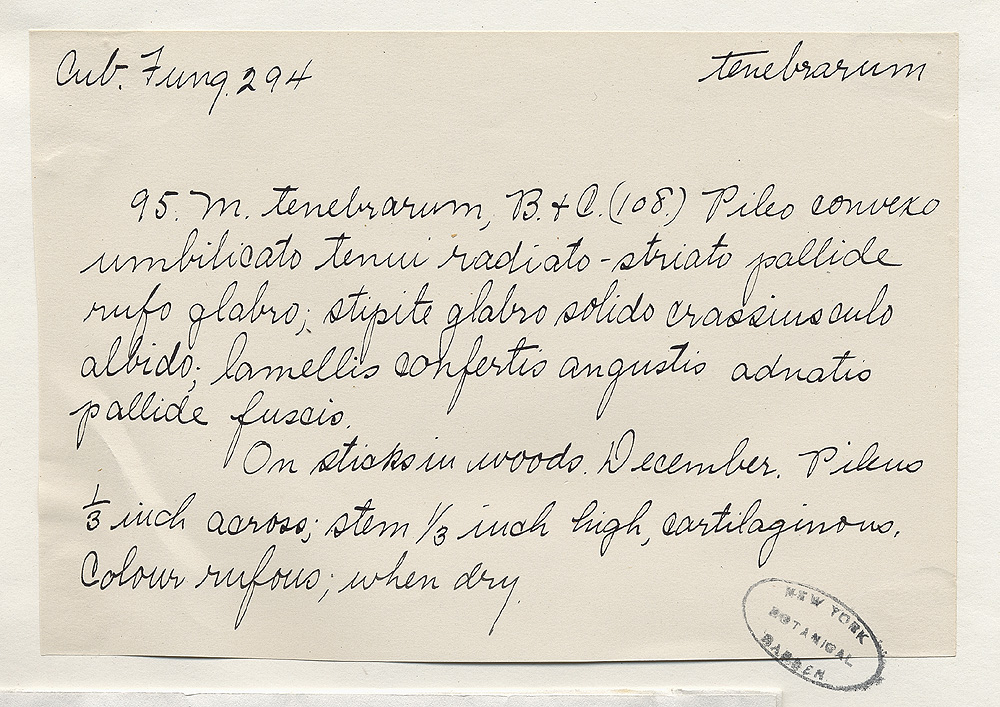 Cub. Fung. 294
tenebrarum
95. M. tenebrarum, B. & C. (108.) Pileo convexo
umbilicato tenui radiato-striato pallide
rufo glabro; stipite glabro solido crassiusculo
albido; lamellis confertis angustis adnatis
pallide fuscis.
On sticks in woods. December. Pileus
1/3 inch across; stem 1/3 inch high, cartilaginous.
Colour rufous; when dry.
NEW YORK
BOTANICAL
GARDEN